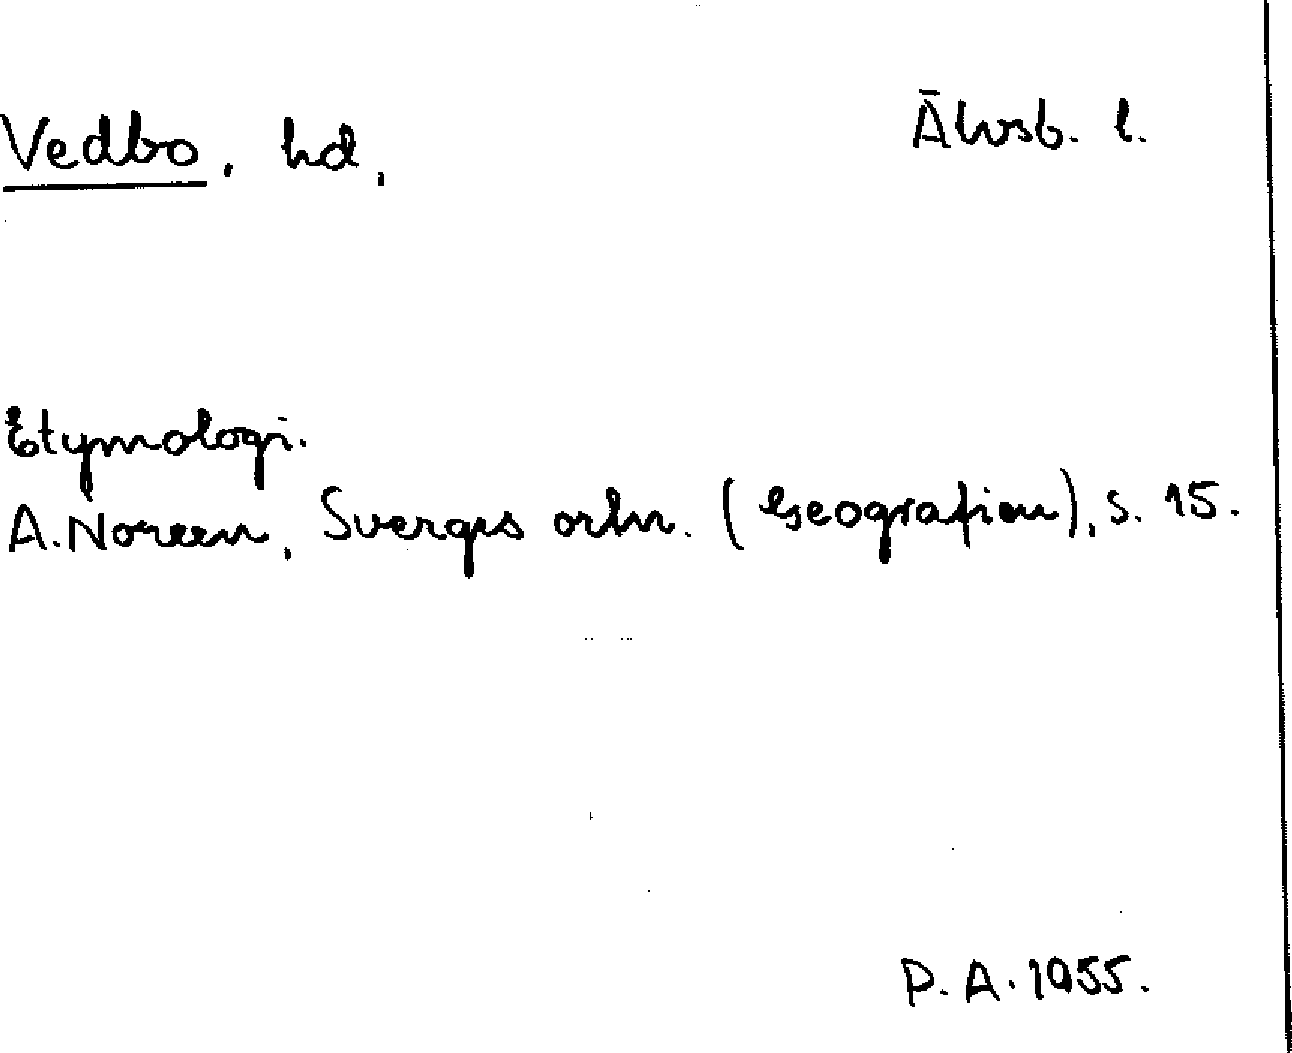 Vedbo, hd, Älvsb. l.
Etymologi.
A. Noreen, Sverges ortn. (Geografien), s. 15.
P. A. 1955.